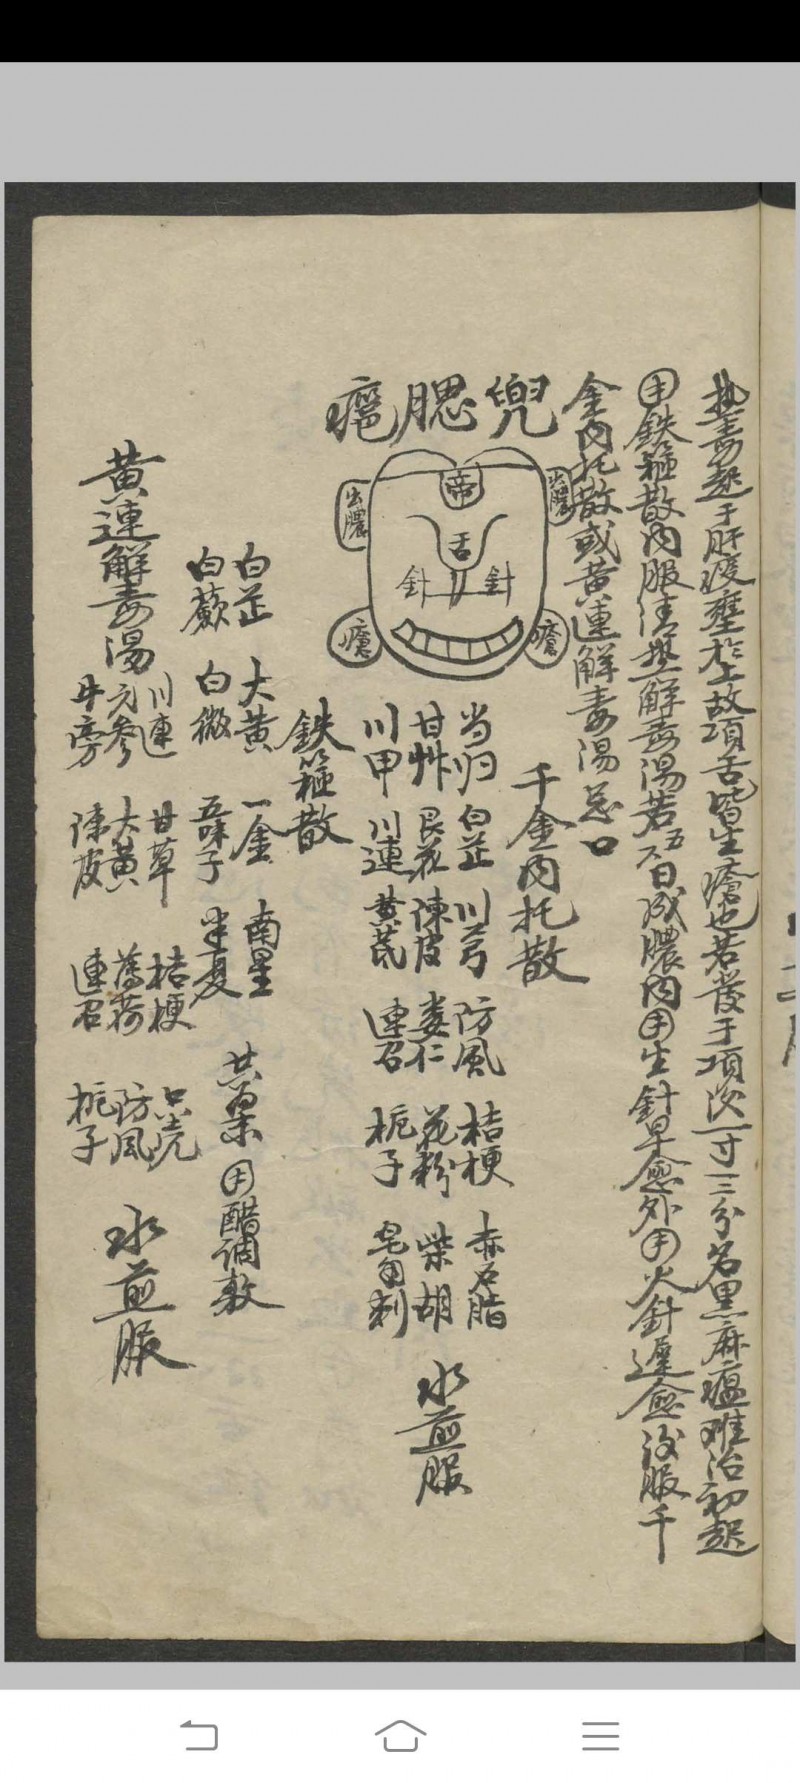 兜腮㾺
熱毒起于肝殁壅於上故項舌皆生瘡也若發于項淡一寸三分名黑麻瘟难治初起
用鉄箍散内服清熱解毒湯若五六日成膿内用生針早愈外用火針遲愈後服千
金内托散或黄連解毒湯忌口
帝
舌
針
針
出膿
出膿
瘡
瘡
千金内托散
当归 白芷 川芎 防風 桔梗 赤石脂
甘艸 艮花 陳皮 娄仁 花粉 柴胡
川甲 川連 黄芪 連召 栀子 皂角刺
水煎服
鉄箍散
白芷 大黄 一金 南星
白蔹 白微 五味子 半夏
共為末 用醋調敷
黄連解毒湯
川連 甘草 桔梗 只壳
元參 大黄 薄荷 防風
牛旁 陳皮 連召 栀子
水煎服